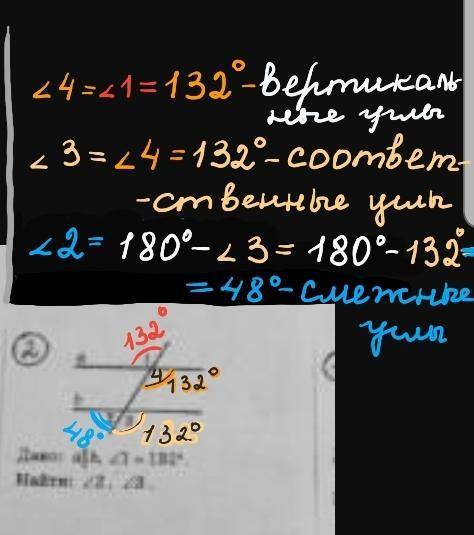 ∠4=∠1=132°-вертикаль
ные углы
∠3=∠4=132°-соответ-
-ственные углы
∠2=180°-∠3=180°-132°=
=48°-смежные
углы
2
132°
a
4 132°
b
48° 132°
Дано: a||b, ∠1 = 132°.
Найти: ∠2, ∠3.